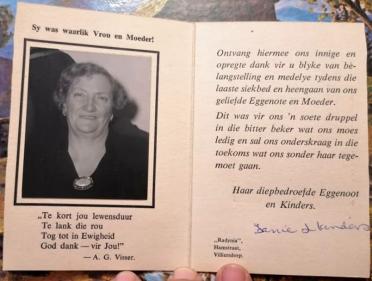 Sy was waarlik Vrou en Moeder!
„Te kort jou lewensduur
Te lank die rou
Tog tot in Ewigheid
God dank — vir Jou!"
— A. G. Visser.
Ontvang hiermee ons innige en
opregte dank vir u blyke van be-
langstelling en medelye tydens die
laaste siekbed en heengaan van ons
geliefde Eggenote en Moeder.
Dit was vir ons 'n soete druppel
in die bitter beker wat ons moes
ledig en sal ons onderskraag in die
toekoms wat ons sonder haar tege-
moet gaan.
Haar diepbedroefde Eggenoot
en Kinders.
kinders
„Radynia",
Hamstraat,
Villiersdorp.